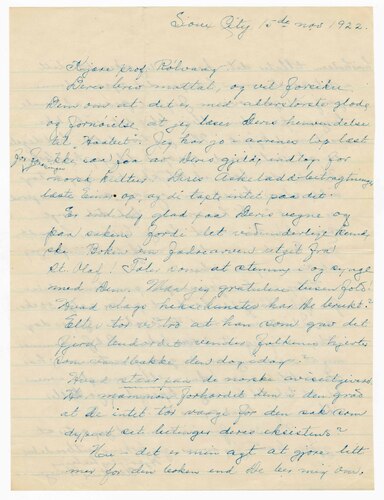 Sioux City 15de nov 1922.
Kjære prof. Rölvaag
Deres brev mottat, og vil forsikre
Dem om at det er med allerstørste glæde
og fornöielse at jeg læser Deres henvendelse
til Jeg har jo
Jeg forresten
ikke saa faa av Deres gjeld, indlæg for
norsk kultur. Deres Askeladd-betragtninger
læste Emer op, og de tapte intet paa det!
Er end lig glad paa Deres vegne og
paa sakens gjorde det vidunderlige
ske. Boken om fædrearven utgit fra
St. Olaf! Tale om at stemme i og synge
med Dem. Maa jeg gratulere tusen fold!
Hvad slags heksekunster har De brukt?
Eller tör vi tro at han som gav det
jera vender folkens hjerter
som vandbække den dag idag?
Hvad staar paa de norske avisutgivere
Har mammon forhærdet dem i den grad
at de intet tör vaage for den sak som
dypest set betinger deres eksistens?
Nu i det er min agt at gjöre litt
mer for din boken end De ber mig om,